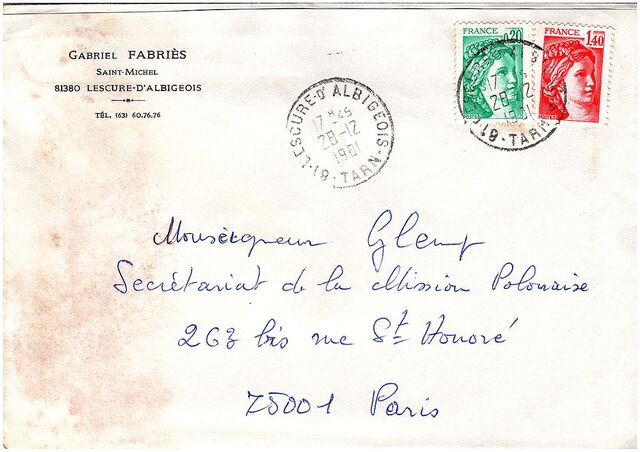 GABRIEL FABRIÈS
SAINT-MICHEL
81380 LESCURE-D'ALBIGEOIS
TÉL. (63) 60.76.76
FRANCE
0,20
FRANCE
1,40
LESCURE-D'ALBIGEOIS
17 H 45
28-12
1981
81 - TARN
17 H
28-12
1981
81 TARN
Monseigneur Glemp
Secrétariat de la Mission Polonaise
263 bis rue St Honoré
75001 Paris